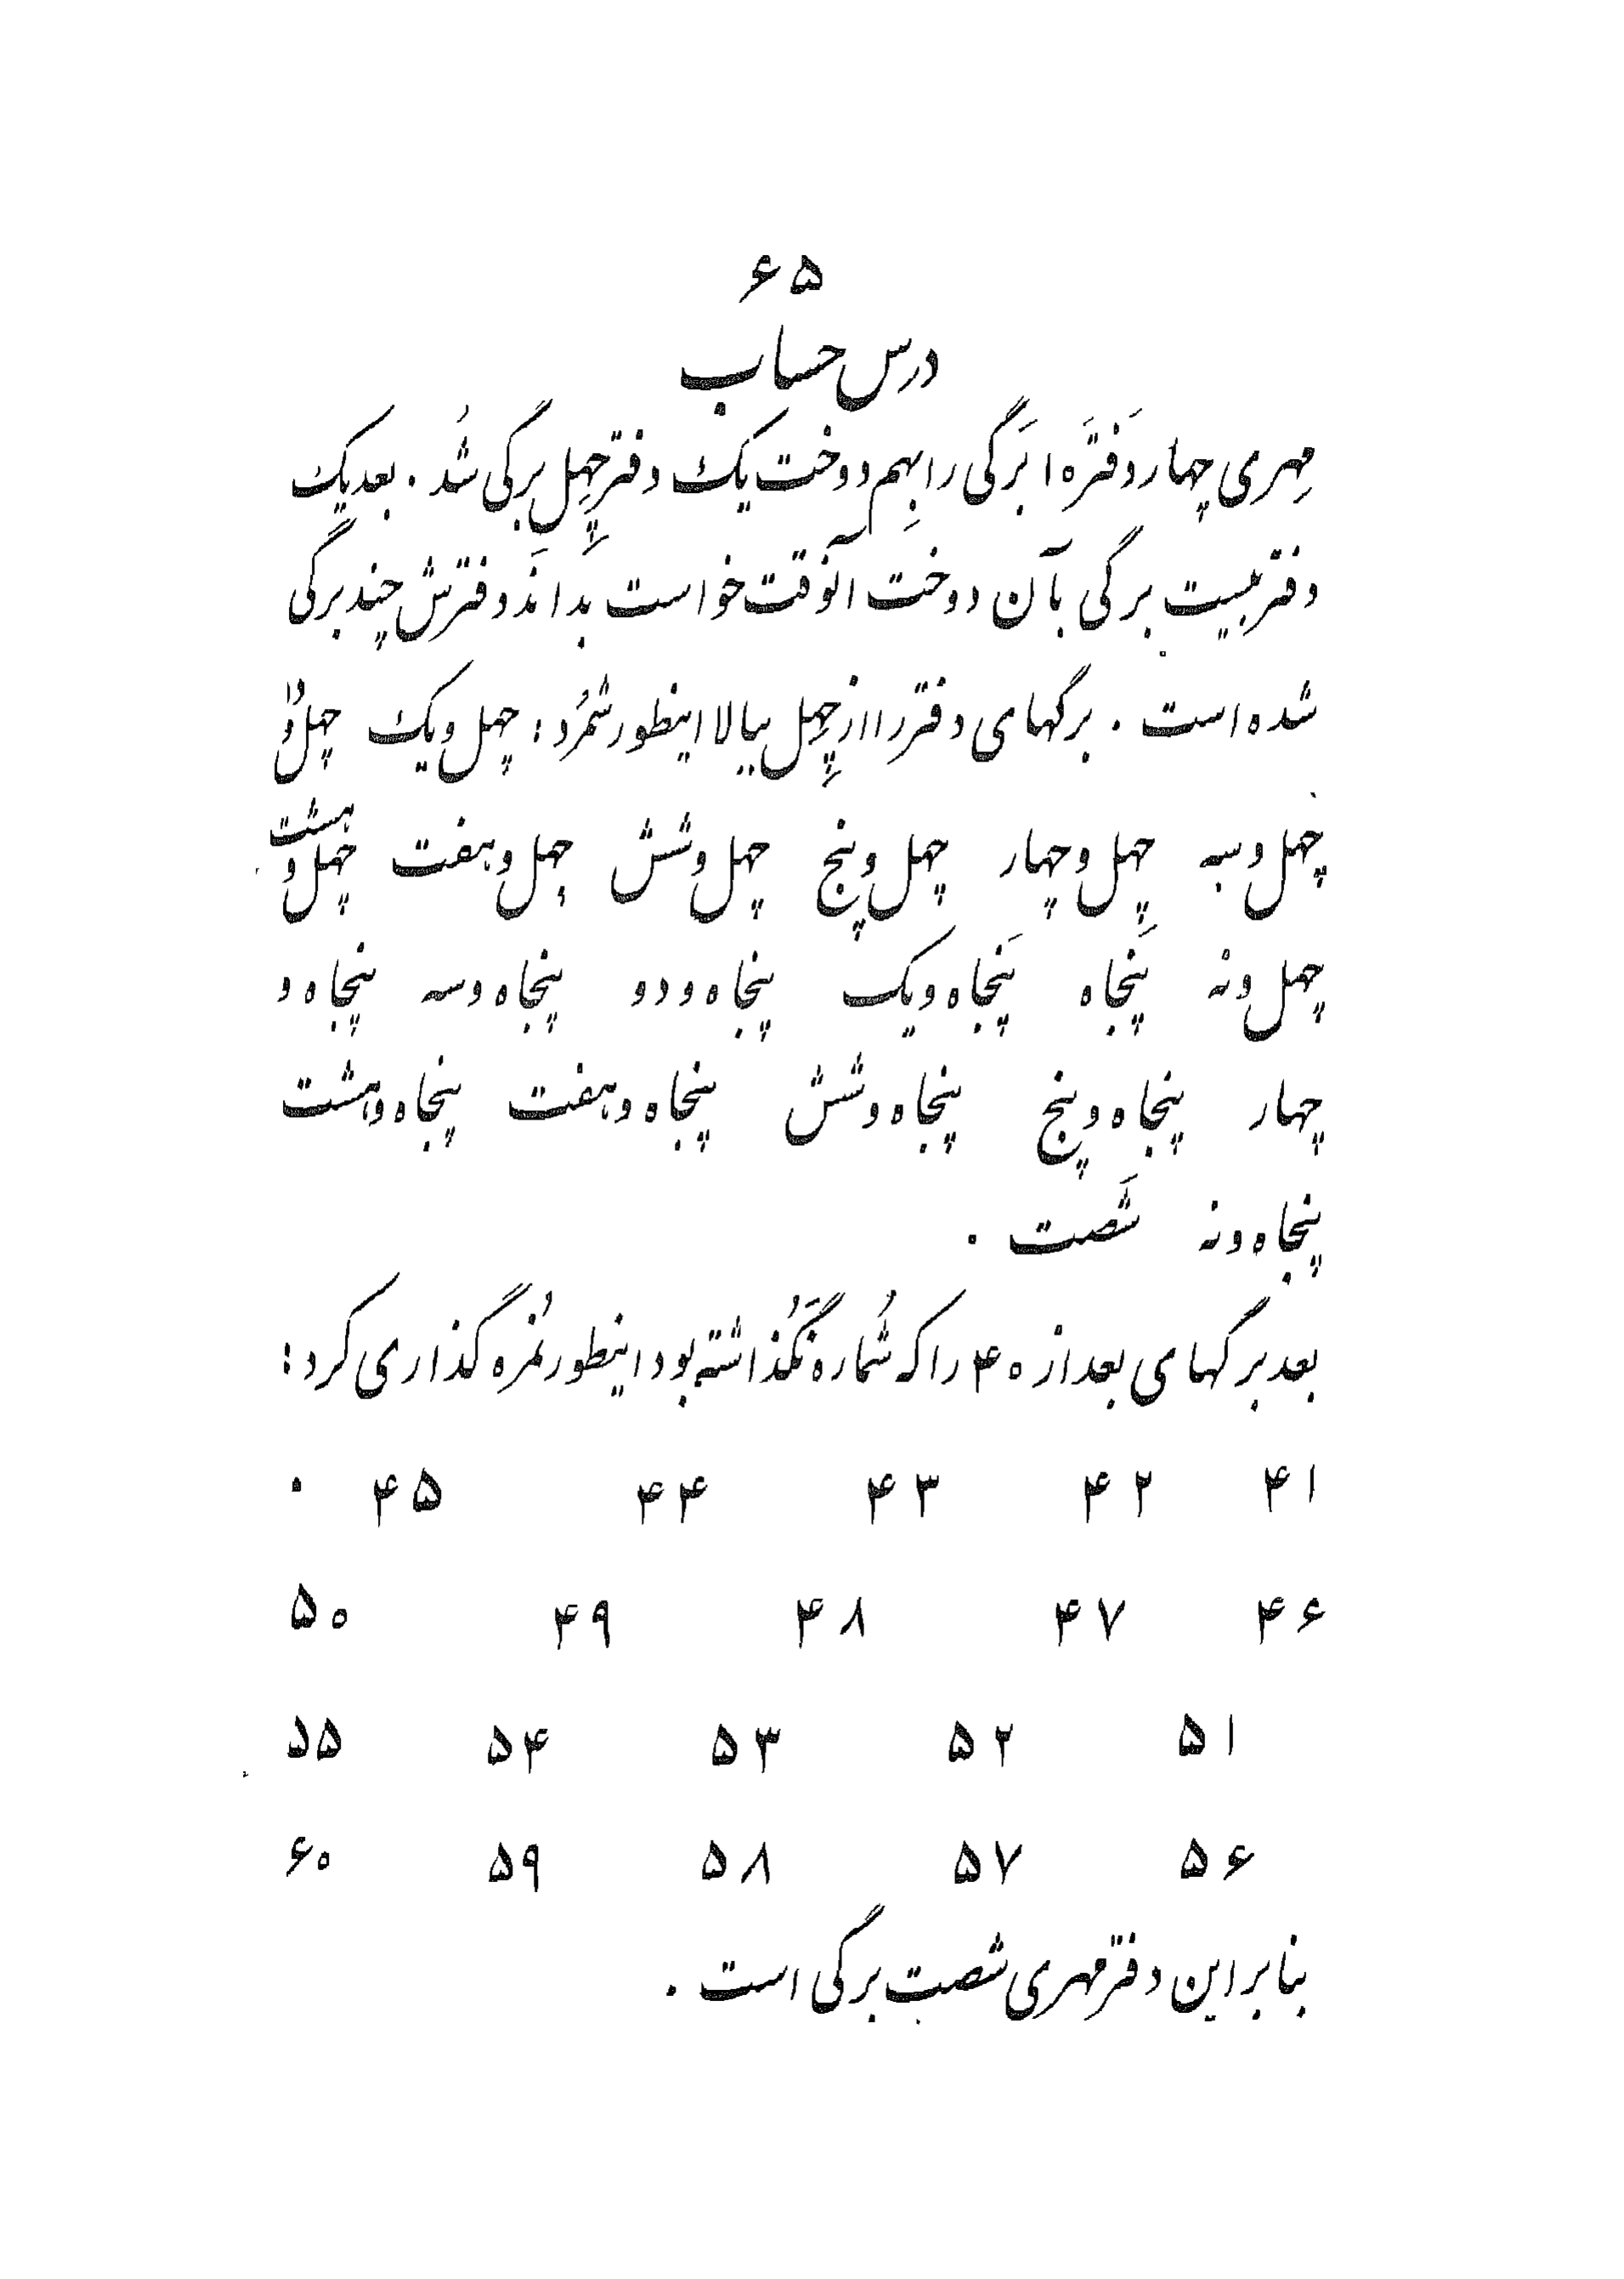 ۶۵
درس حساب
مِهری چهار دَفتَر ۱۰ بَرگی را بِهم دوخت یک دفتر چِهِل برگی شُد . بعد یک
دفتر بیست برگی بآن دوخت آنوَقت خواست بداند دفترش چند برگی
شده است . برگهای دفتر را از چِهِل ببالا اینطور شمُرد : چهل و یک چهل و دو
چهل و سه چهل و چهار چهل و پنج چهل و شش چهل و هفت چهل و هشت
چهل و نه پَنجاه پَنجاه و یک پنجاه و دو پنجاه و سه پنجاه و
چهار پنجاه و پنج پنجاه و شش پنجاه و هفت پنجاه و هشت
پنجاه و نه شَصت .
بعد برگهای بعد از ۴۰ را که شُماره نَگُذاشته بود اینطور نُمره گذاری کرد :
۴۱ ۴۲ ۴۳ ۴۴ ۴۵ .
۴۶ ۴۷ ۴۸ ۴۹ ۵۰
۵۱ ۵۲ ۵۳ ۵۴ ۵۵
۵۶ ۵۷ ۵۸ ۵۹ ۶۰
بنابراین دفتر مهری شصت برگی است .